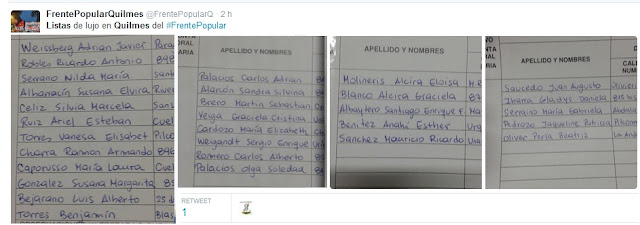 FrentePopularQuilmes @FrentePopularQ · 2 h
Listas de lujo en Quilmes del #FrentePopular
Weissberg Adrian Javier
Robles Ricardo Antonio
Serrano Nilda María
Albanacin Susana Elvira
Celiz Silvia Marcela
Ruiz Ariel Esteban
Torres Vanesa Elisabet
Charra Ramon Armando
Caporusso María Laura
Gonzalez Susana Margarita
Bejarano Luis Alberto
Torres Benjamín
ORAL
ARIA
APELLIDO Y NOMBRES
Palacios Carlos Adrian
Alarcón Sandra Silvina
Brero Martin Sebastian
Veiga Graciela Cristina
Cardozo María Elizabeth
Weigandt Sergio Enrique
Romero Carlos Alberto
Palacios Olga Soledad
APELLIDO Y NOMBRES
Molineris Alcira Eloisa
Blanco Alcira Graciela
Albaytero Santiago Enrique F.
Benitez Anahí Esther
Sanchez Mauricio Ricardo
NTA
ORAL
ARIA
APELLIDO Y NOMBRES
Saucedo Juan Augusto
Ibarra Gladys Daniela
Serrano María Gabriela
Pedrozo Jaqueline Patricia
Oliver Perla Beatriz
RETWEET
1